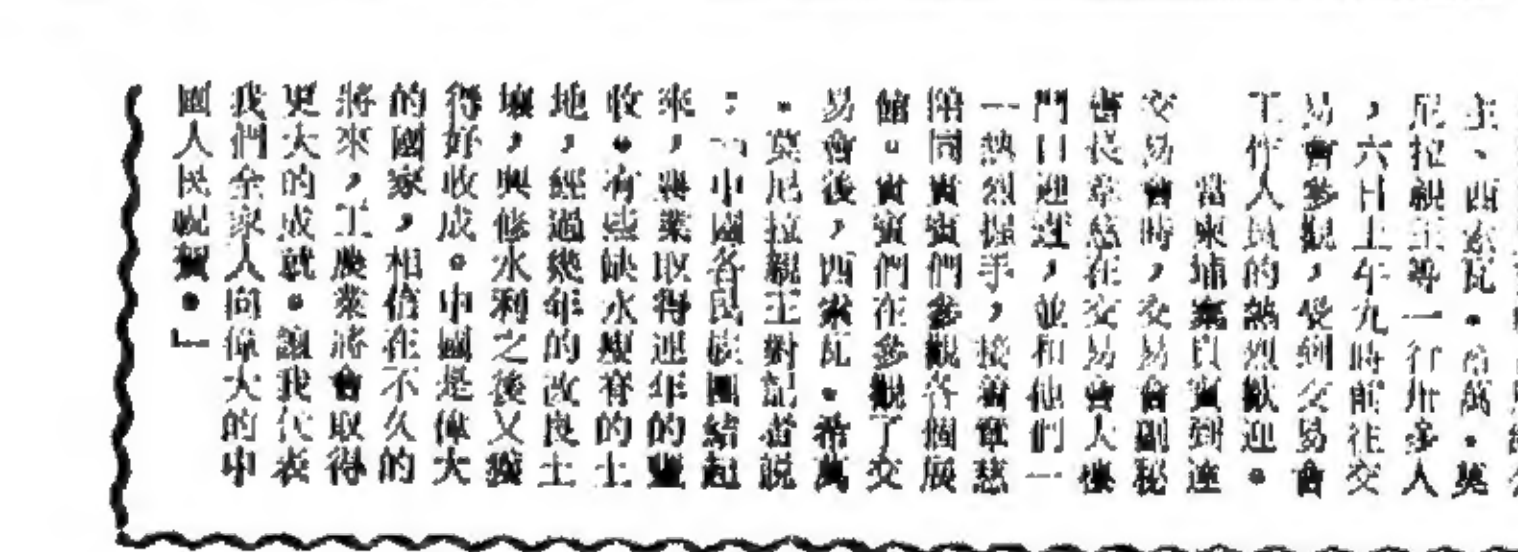 主、西索瓦•希萬•莫
尼拉親王等一行卅多人
，六日上午九時前往交
易會參觀，受到交易會
工作人員的熱烈歡迎。
當柬埔寨貴賓到達
交易會時，交易會副秘
書長章慈在交易會大樓
門口迎迓，並和他們一
一熱烈握手，接着章慈
陪同貴賓們參觀各個展
館。貴賓們在參觀了交
易會後，西索瓦•希萬
•莫尼拉親王對記者説
：「中國各民族團結起
來，農業取得連年的豐
收。有些缺水瘦脊的土
地，經過幾年的改良土
壤，興修水利之後又獲
得好收成。中國是偉大
的國家，相信在不久的
將來，工農業將會取得
更大的成就。讓我代表
我們全家人向偉大的中
國人民祝賀。」